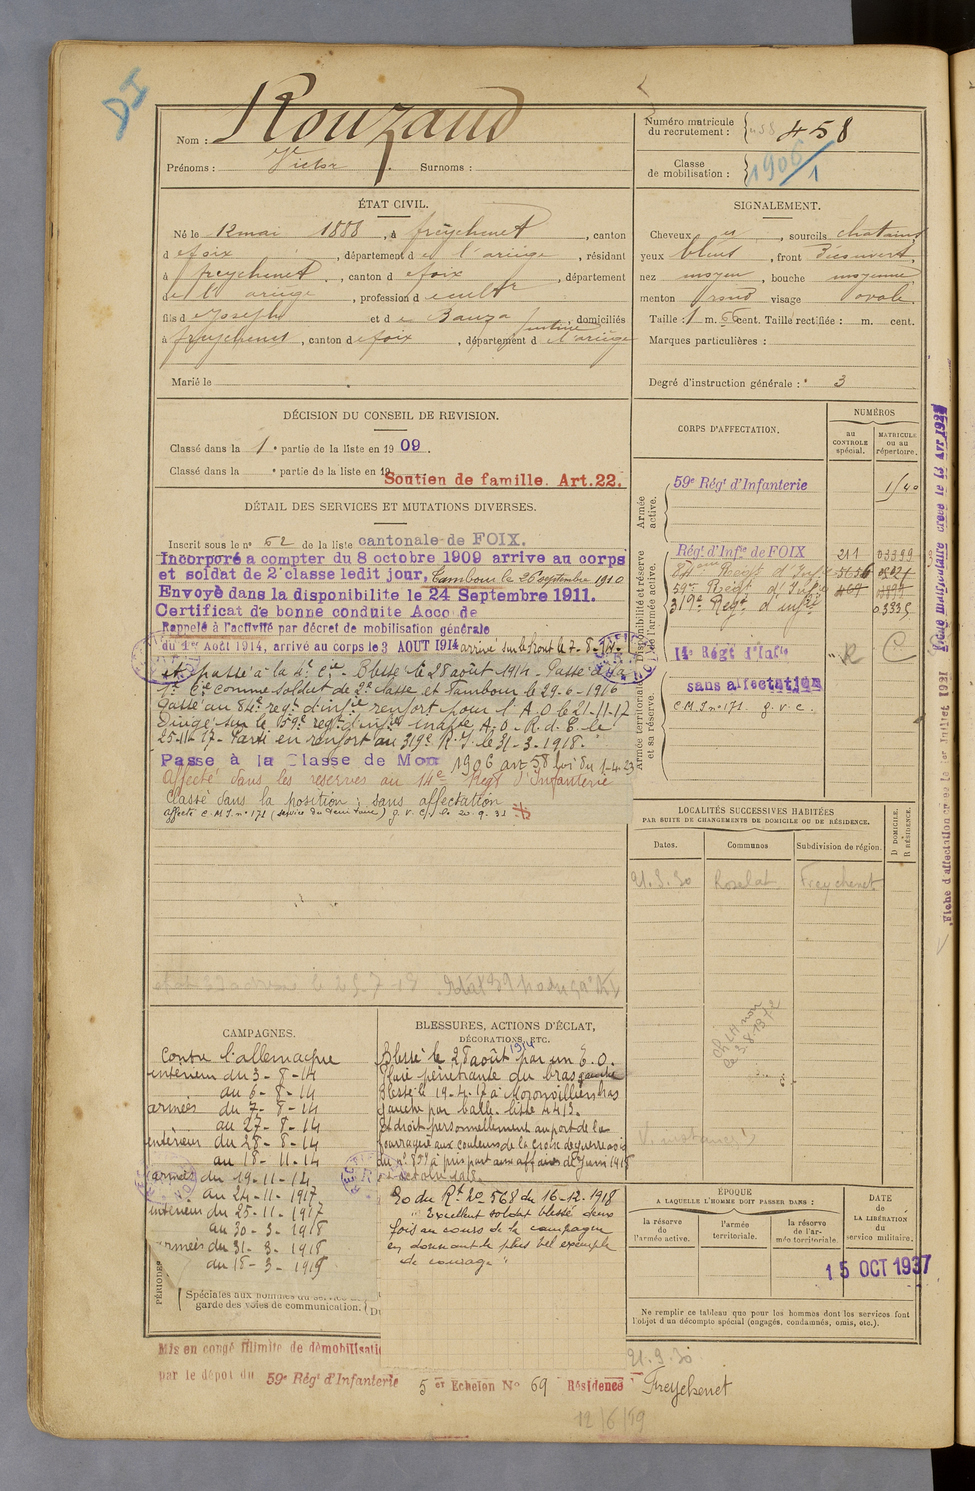 DI
Nom : Rouzaud
Prénoms : Victor . Surnoms :
Numéro matricule
du recrutement : 458
Classe
de mobilisation : 1906/1
ÉTAT CIVIL.
Né le 12 mai 1888, à freychenet, canton
de foix, département de l'ariège, résidant
à freychenet, canton de foix, département
de l'ariège, profession de cultr
fils de Joseph et de Bauza domiciliés
à freychenet, canton de foix, département de l'ariège
Marié le
SIGNALEMENT.
Cheveux et, sourcils chatains
yeux bleus, front Découvert,
nez moyen, bouche moyenne
menton rond visage ovale.
Taille : 1 m. 66 cent. Taille rectifiée : m. cent.
Marques particulières :
Degré d'instruction générale : 3
DÉCISION DU CONSEIL DE REVISION.
Classé dans la 1e partie de la liste en 1909.
Classé dans la e partie de la liste en 19
Soutien de famille. Art.22.
DÉTAIL DES SERVICES ET MUTATIONS DIVERSES.
Inscrit sous le n° 52 de la liste cantonale de FOIX.
Incorporé à compter du 8 octobre 1909 arrivé au corps
et soldat de 2e classe ledit jour, Tambour le 26 septembre 1910
Envoyé dans la disponibilité le 24 Septembre 1911.
Certificat de bonne conduite Accordé
Rappelé à l'activité par décret de mobilisation générale
du 1er Août 1914, arrivé au corps le 3 AOUT 1914 arrivé sur le front le 7-8-14
passé à la 4e Cie - Blessé le 28 août 1914 - Passé à la
1e Cie comme Soldat de 2e classe et Tambour le 29-6-1916
Passé au 84e regt d'infie renfort pour l'A.O le 21-11-17
Dirigé sur le 159e regt d'infie inapte A.O. R.d.E. le
25-11-17 - Parti en renfort au 319e R.I. le 31-3-1918.
Passe à la Classe de Mon 1906 art 58 loi du 1-4-23
Affecté dans les réserves au 14e Régt d'Infanterie
Classé dans la position : sans affectation
affecté C.M.I. n° 171 (service du territoire) g.v.c. le 20-9-31
CORPS D'AFFECTATION.
NUMÉROS
au
CONTROLE
spécial.
MATRICULE
ou au
répertoire.
Armée
active.
59e Régt d'Infanterie
1140
Disponibilité et réserve
de l'armée active.
Régt d'Infie de FOIX 211 03399
84ème Régt d'Infie 5656
59e Régt d'Infie 467
319e Régt d'infie 03335
14e Régt d'Infie R C
Armée territoriale
et sa réserve.
sans affectation
C.M.I n° 171. g.v.c.
LOCALITÉS SUCCESSIVES HABITÉES
PAR SUITE DE CHANGEMENTS DE DOMICILE OU DE RÉSIDENCE.
Dates. Communes Subdivision de région. D DOMICILE. R RÉSIDENCE.
21.3.30 Roselat Freychenet
CAMPAGNES.
Contre l'allemagne
intérieur du 3-8-14
au 6-8-14
armées du 7-8-14
au 27-8-14
intérieur du 28-8-14
au 18-11-14
armées du 19-11-14
au 24-11-1917
intérieur du 25-11-1917
au 30-3-1918
armées du 31-3-1918
au 15-3-1919
PÉRIODES
Spéciales aux hommes du service de
garde des voies de communication.
BLESSURES, ACTIONS D'ÉCLAT,
DÉCORATIONS, ETC.
Blessé le 28 août 1914 par un E.O.
Plaie pénétrante du bras gauche
Blessé le 19-4-17 à Moronvilliers bras
gauche par balle. liste 4413.
Et droit personnellement au port de la
fourragère aux couleurs de la croix de guerre
a pris part aux affaires de Juin 1918
O du Rt n° 568 du 16-12-1918
"Excellent soldat blessé deux
fois au cours de la campagne
en donnant le plus bel exemple
de courage".
ÉPOQUE
A LAQUELLE L'HOMME DOIT PASSER DANS :
la réserve
de
l'armée active.
l'armée
territoriale.
la réserve
de l'ar-
mée territoriale.
DATE
de
LA LIBÉRATION
du
service militaire.
15 OCT 1937
Ne remplir ce tableau que pour les hommes dont les services font
l'objet d'un décompte spécial (engagés, condamnés, omis, etc.).
Mis en congé illimité de démobilisati
par le dépôt du 59e Régt d'Infanterie 5 er Echelon No 69 Résidence Freychenet
21.9.30
12/6/19